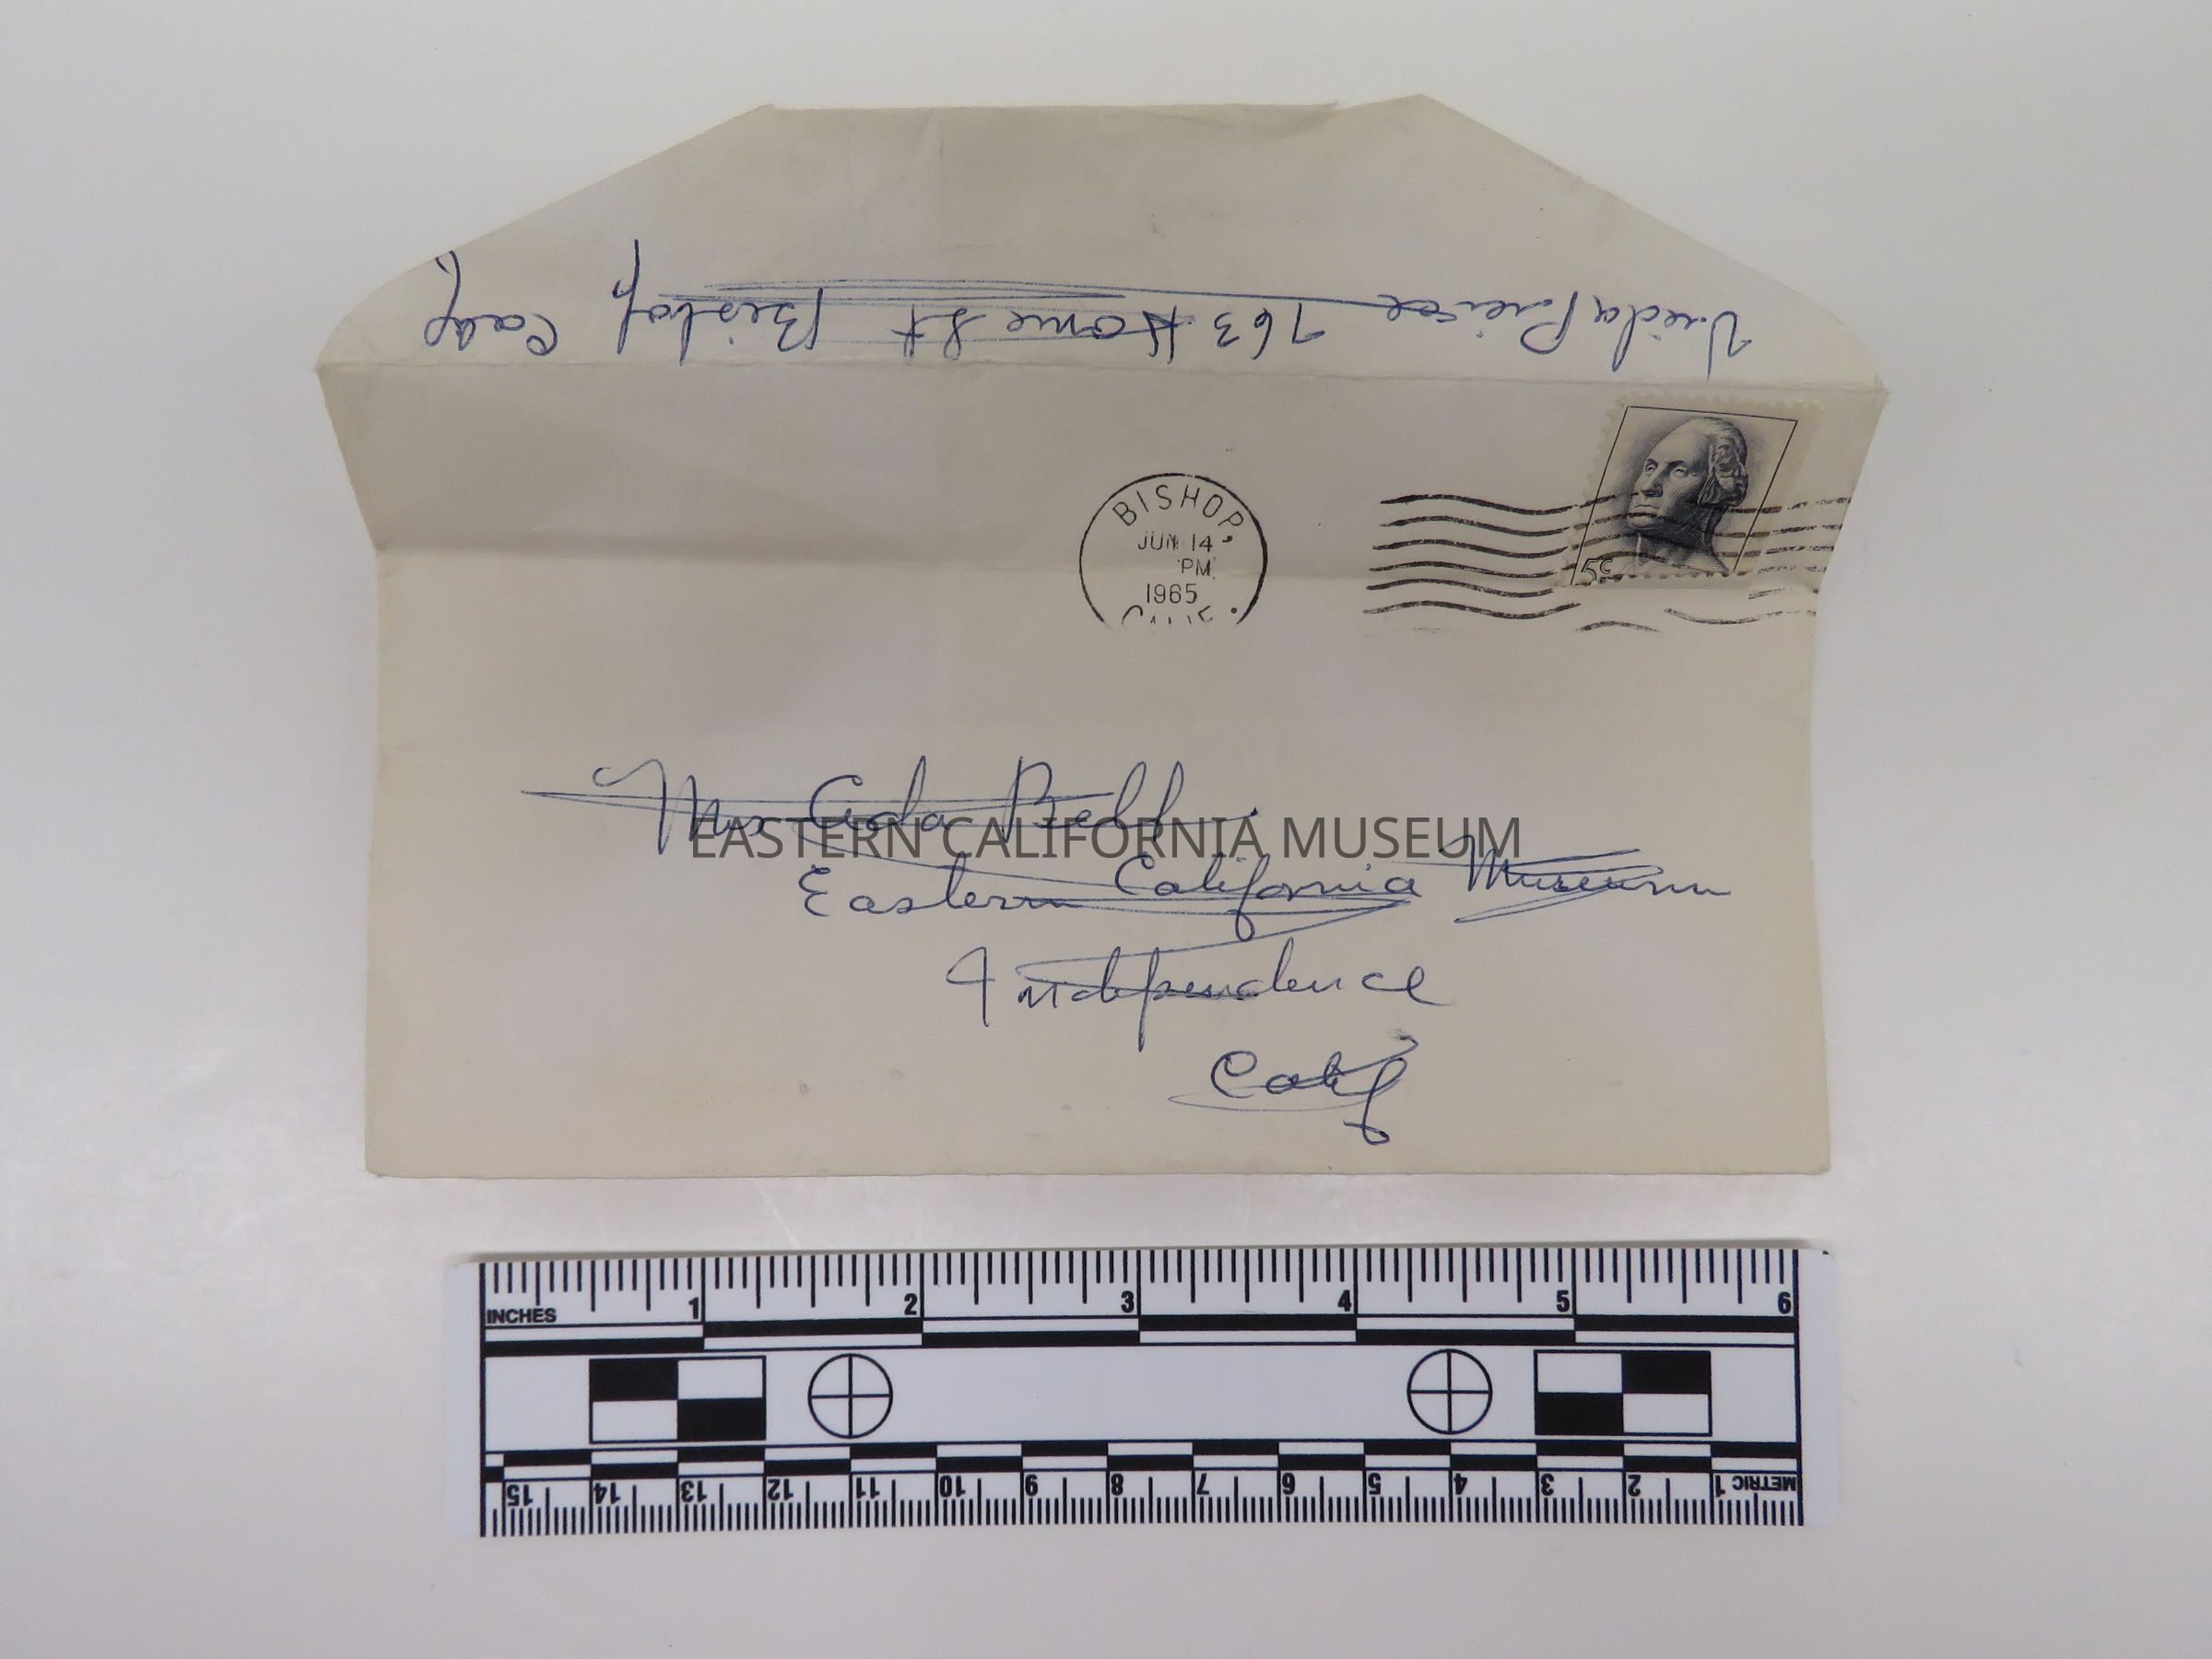 763 Home St Bishop Calif
BISHOP,
JUN 14
PM
1965
CALIF.
5c
Mrs Ada Bell
Eastern California Museum
Independence
Calif
EASTERN CALIFORNIA MUSEUM
1 2 3 4 5 6
INCHES
15 14 13 12 11 10 9 8 7 6 5 4 3 2 1 METRIC